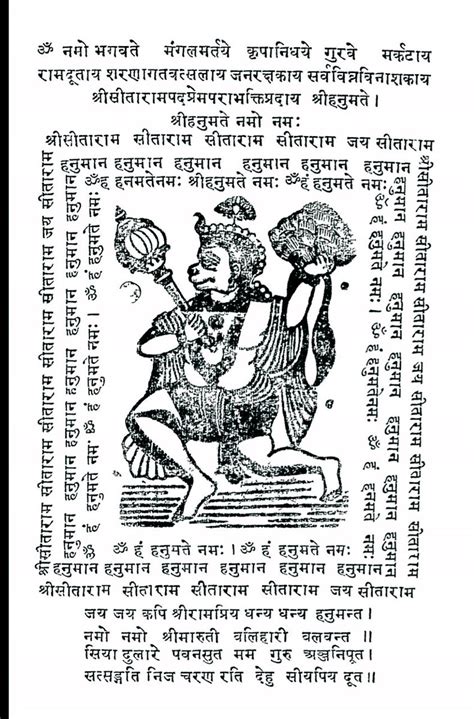 ॐ नमो भगवते मंगलमर्तये कृपानिधये गुरवे मर्कटाय
रामदूताय शरणागतवत्सलाय जनरञ्जकाय सर्वविघ्नविनाशकाय
श्रीसीतारामपदप्रेमपराभक्तिप्रदाय श्रीहनुमते।
श्रीहनुमते नमो नमः
श्रीसीताराम सीताराम सीताराम सीताराम जय सीताराम
हनुमान हनुमान हनुमान हनुमान हनुमान हनुमान
ॐ हं हनमतेनमः श्रीहनुमते नमः ॐ हं हनुमते नमः
श्रीसीताराम सीताराम सीताराम सीताराम जय सीताराम
हनुमान हनुमान हनुमान हनुमान हनुमान हनुमान
ॐ हं हनुमते नमः ॐ हं हनुमते नमः। ॐ हं हनुमते नमः
ॐ हं हनुमते नमः। ॐ हं हनुमतेनमः ॐ हं हनुमते नमः
हनुमान हनुमान हनुमान हनुमान हनुमान हनुमान
श्रीसीताराम सीताराम सीताराम जय सीताराम सीताराम
ॐ हं हनुमते नमः। ॐ हं हनुमते नमः
हनुमान हनुमान हनुमान हनुमान हनुमान हनुमान
श्रीसीताराम सीताराम सीताराम सीताराम जय सीताराम
जय जय कपि श्रीरामप्रिय धन्य धन्य हनुमन्त।
नमो नमो श्रीमारुती वलिहारी वलवन्त॥
सिया दुलारे पवनसुत मम गुरु अञ्जनिपूत।
सत्सङ्गति निज चरण रति देहु सीयपिय दूत॥